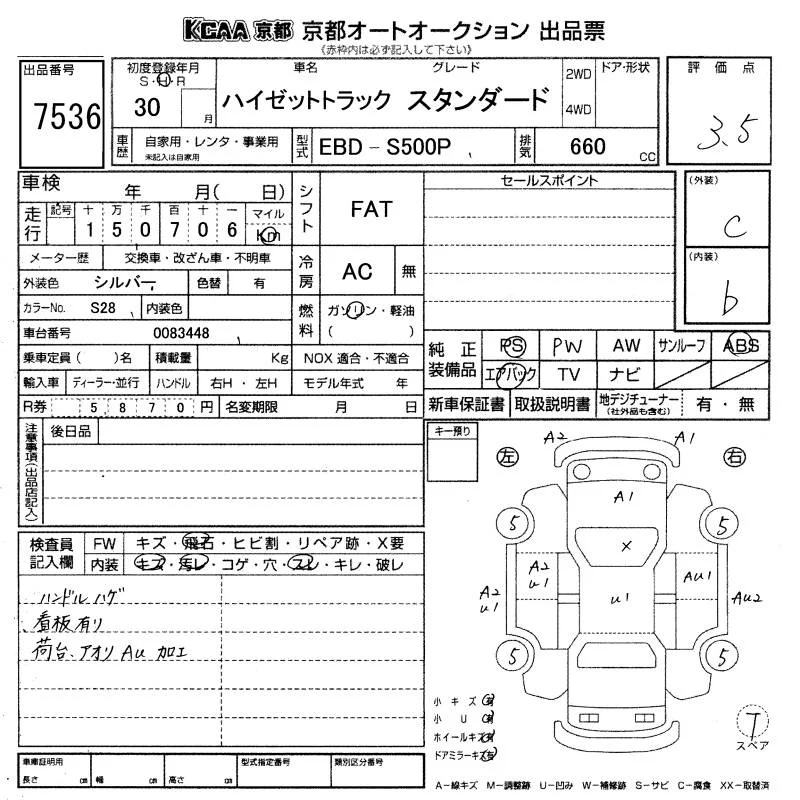 KCAA 京都 京都オートオークション 出品票
《赤枠内は必ず記入して下さい》
出品番号
7536
初度登録年月
S・H・R
30 月
車名 グレード
ハイゼットトラック スタンダード
2WD
4WD
ドア・形状
評価点
3.5
車歴 自家用・レンタ・事業用
未記入は自家用
型式 EBD - S500P
排気 660 CC
車検 年 月( 日)
走行 記号 十 万 千 百 十 一 マイル
1 5 0 7 0 6 Km
メーター歴 交換車・改ざん車・不明車
外装色 シルバー 色替 有
カラーNo. S28 内装色
車台番号 0083448
乗車定員( )名 積載量 Kg
輸入車 ディーラー・並行 ハンドル 右H・左H
R券 5 8 7 0 円 名変期限 月 日
シフト FAT
冷房 AC 無
燃料 ガソリン・軽油
( )
NOX 適合・不適合
モデル年式 年
セールスポイント
(外装)
C
(内装)
b
純正装備品 PS PW AW サンルーフ ABS
エアバック TV ナビ
新車保証書 取扱説明書 地デジチューナー
(社外品も含む) 有・無
注意事項(出品店記入) 後日品
キー預り
検査員記入欄 FW キズ・飛石・ヒビ割・リペア跡・X要
内装 キズ・汚レ・コゲ・穴・スレ・キレ・破レ
ハンドルハゲ
看板有り
荷台、アオリ Au 加工
左 右
A2 A1
A1
5 5
X
A2
u1
A2
u1
u1
Au1
Au2
5 5
小キズ 有
小U 有
ホイールキズ 有
ドアミラーキズ 有
T
スペア
車庫証明用
長さ cm 幅 cm 高さ cm
型式指定番号 類別区分番号
A-線キズ M-調整跡 U-凹み W-補修跡 S-サビ C-腐食 XX-取替済